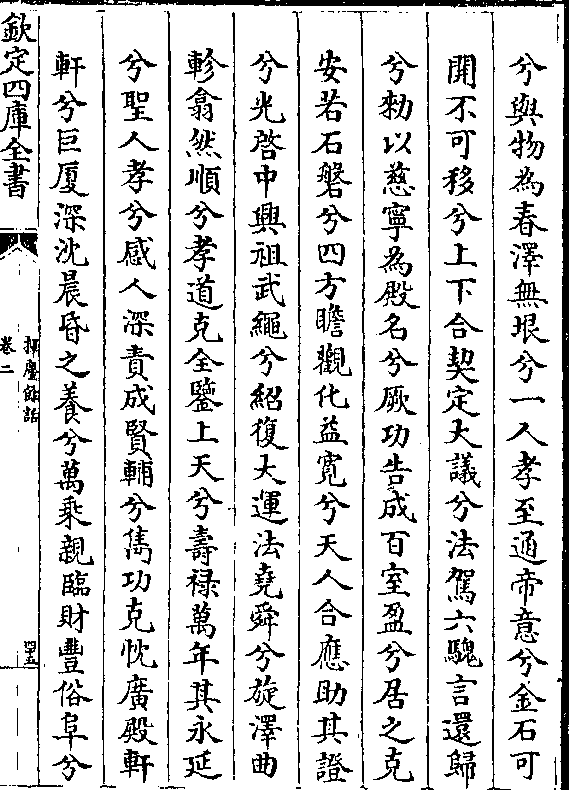 兮與物為春澤無垠兮一人孝至通帝意兮金石可
開不可移兮上下合契定大議兮法駕六騩言還歸
兮勑以慈寧為殿名兮厥功告成百室盈兮居之克
安若石磐兮四方瞻觀化益寛兮天人合應助其證
兮光啓中興祖武繩兮紹復大運法堯舜兮旋澤曲
軫翕然順兮孝道克全鑒上天兮壽祿萬年其永延
兮聖人孝兮感人深責成賢輔兮雋功克忱廣殿軒
軒兮巨厦深沈晨昏之養兮萬乘親臨財豐俗阜兮
欽定四庫全書
揮麈餘話
卷二
四五